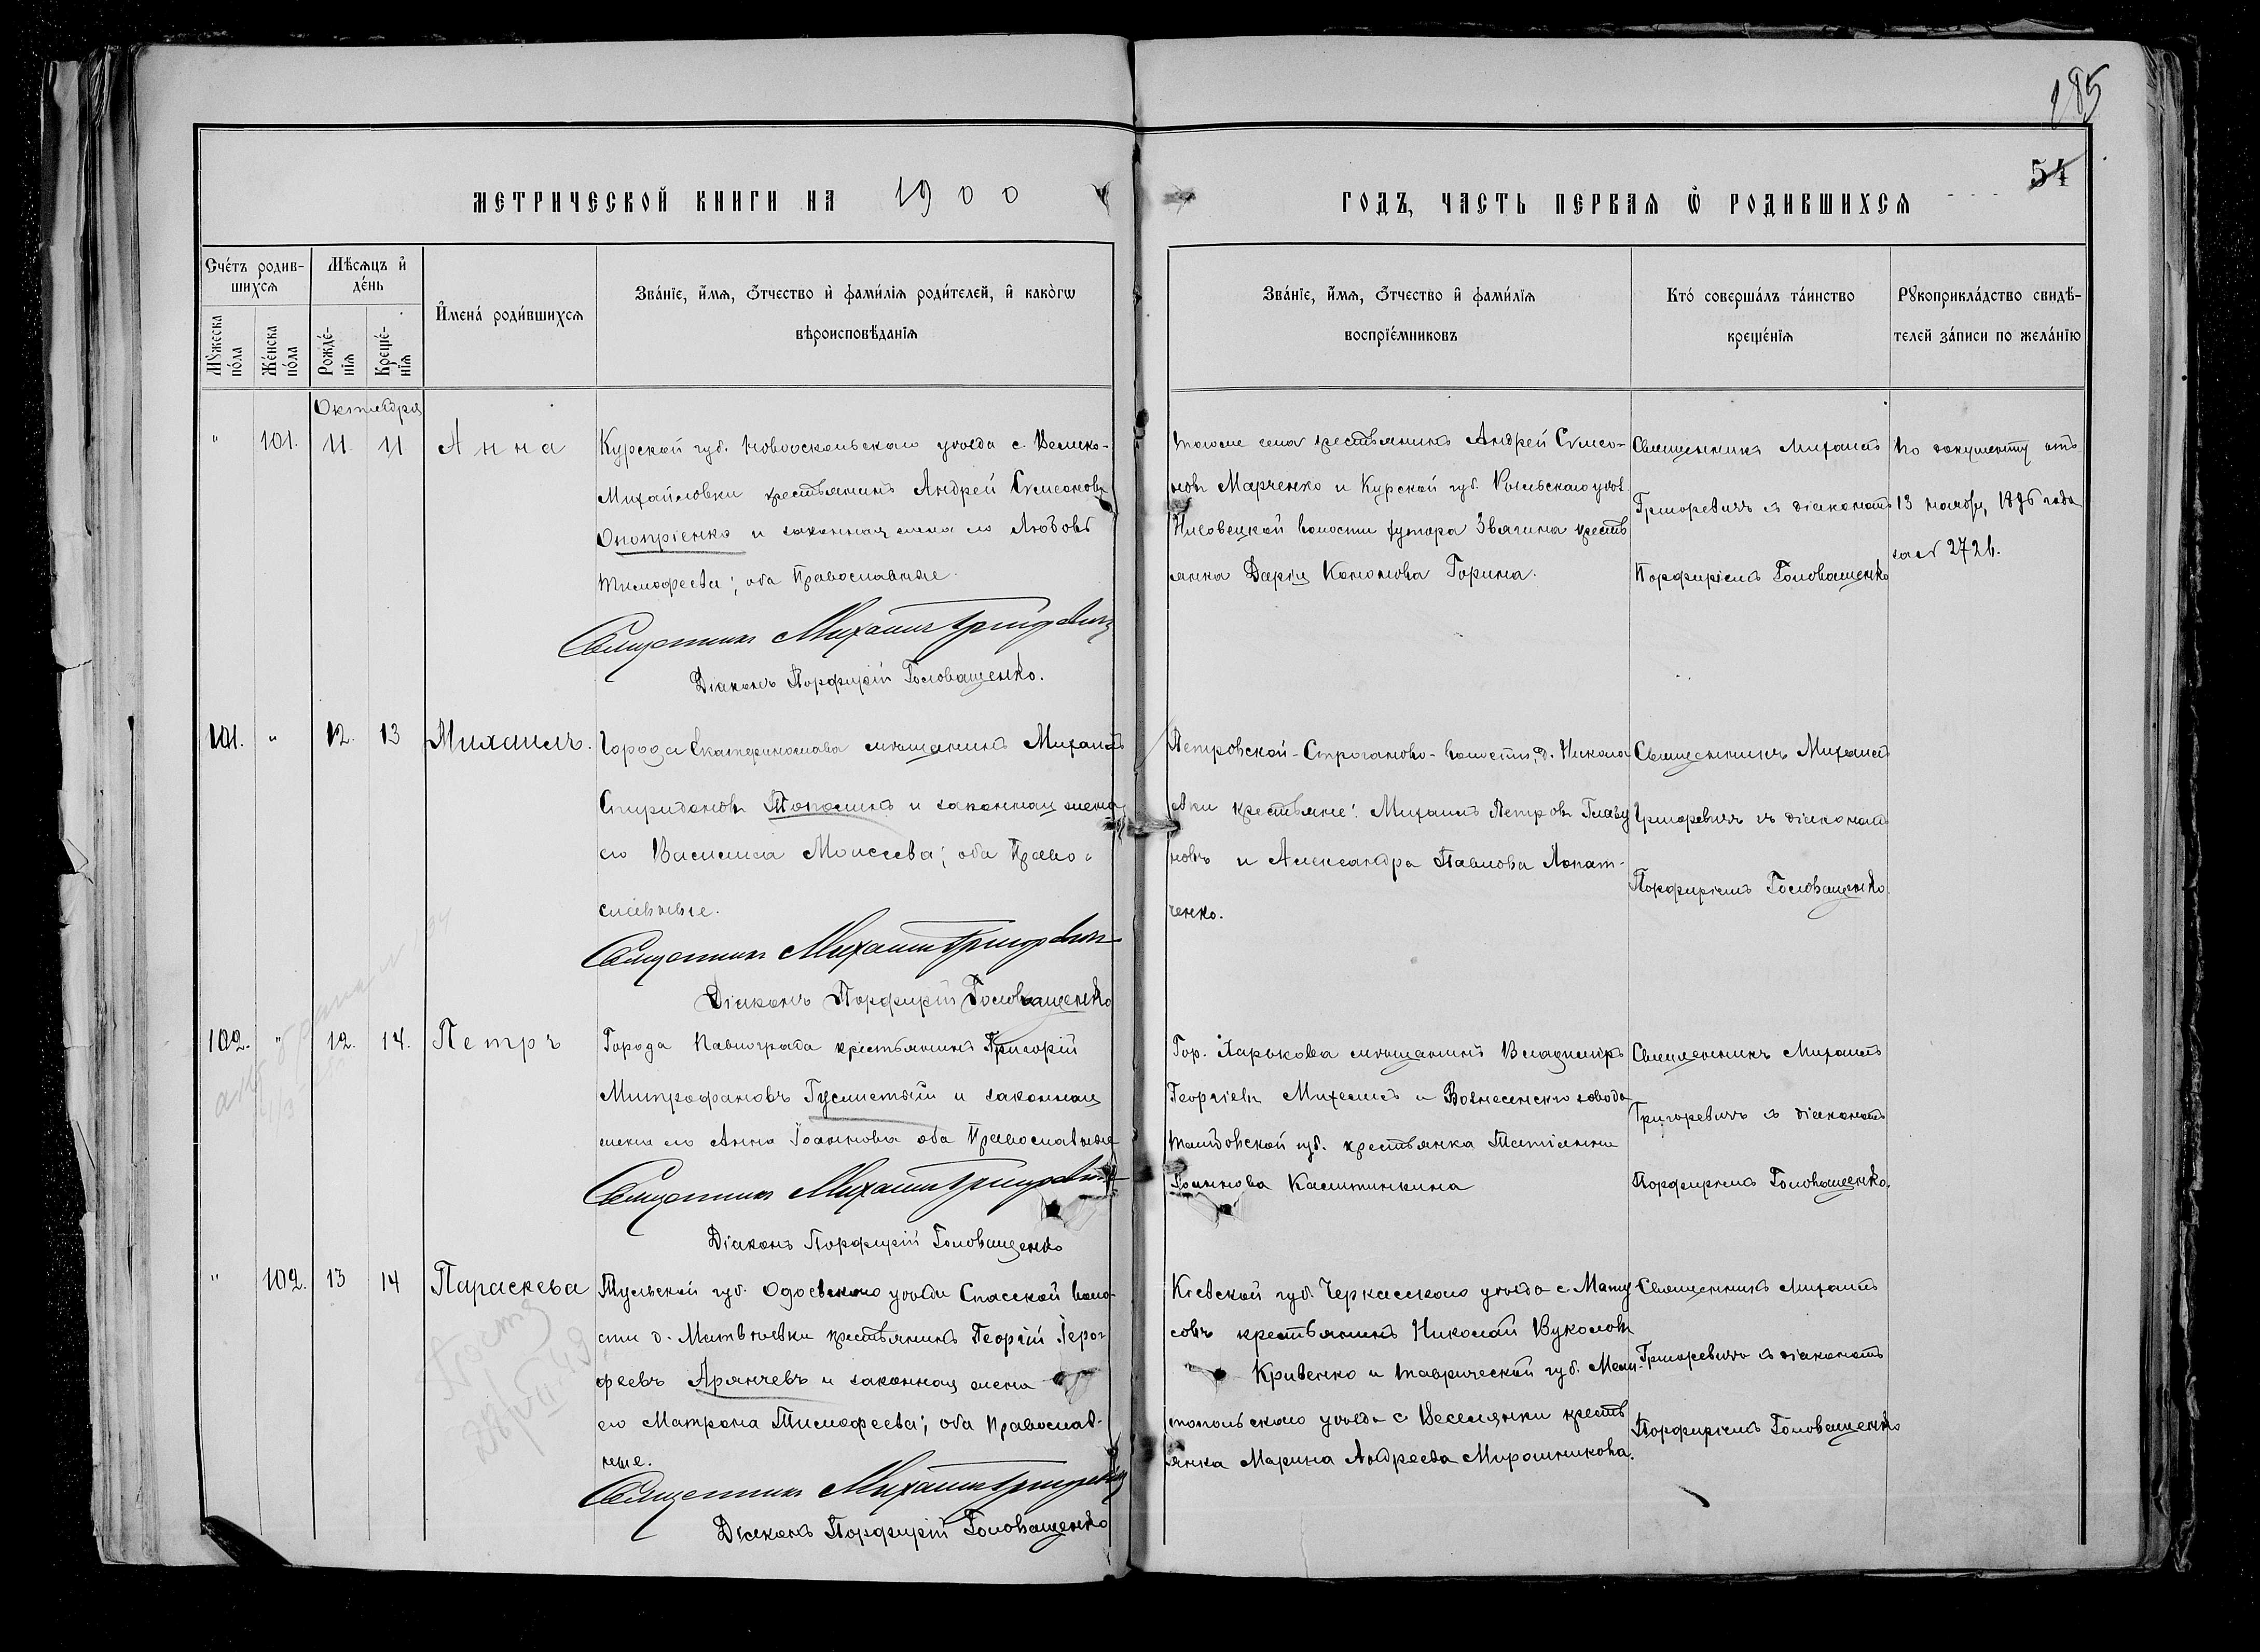 185
54
МЕТРИЧЕСКОЙ КНИГИ НА 1900
ГОДЪ, ЧАСТЬ ПЕРВАѦ Ѽ РОДИВШИХСѦ
Сче́тъ родив-
шихсѧ
Мѣ́сѧцъ и҆
де́нь
И҆мена́ роди́вшихсѧ
Зва́нїе, и҆́мѧ, ѻ҆́тчество и҆ фами́лїѧ роди́телей, и҆ како́гѡ
вѣроисповѣ́данїѧ
Мꙋ́жеска
по́ла
Же́нска
по́ла
Рожде́-
нїѧ
Креще́-
нїѧ
Зва́нїе, и҆́мѧ, ѻ҆́тчество и҆ фами́лїѧ
воспрїе́мниковъ
Кто́ соверша́лъ та́инство
креще́нїѧ
Рꙋкоприкла́дство свидѣ́-
телей за́писи по жела́нїю
Октября
" 101. 11 11 Анна
Курской губ. Новооскольскаго уѣзда с. Велико-
Михайловки крестьянинъ Андрей Симеоновъ
Онопріенко и законная жена его Любовь
Тимофеева; оба Православные.
Священникъ Михаилъ Григоревичъ
Діаконъ Порфирій Головащенко.
тогоже села крестьянинъ Андрей Симео-
новъ Марченко и Курской губ. Рыльскаго уѣз.
волости хутора Звягина кресть
янка Дарія Кононова Горина.
Священникъ Михаилъ
Григоревичъ съ діакономъ
Порфиріемъ Головащенко
По документу отъ
13 ноября 1896 года
за № 2726.
101. " 12. 13 Михаилъ.
Города Екатеринослава мѣщанинъ Михаилъ
Спиридоновъ и законная жена
его Василиса Моисеева; оба Право-
славные.
Священникъ Михаилъ Григоревичъ
Діаконъ Порфирій Головащенко
Петровской-Строганово-волости, д. Никола
евки крестьяне: Михаилъ Петровъ
новъ и Александра Павлова Лопат-
ченко.
Священникъ Михаилъ
Григоревичъ съ діакономъ
Порфиріемъ Головащенко.
102. " 12. 14. Петръ
Города Павлограда крестьянинъ Григорій
Митрофановъ Гуслистый и законная
жена его Анна Іоаннова оба Православные
Священникъ Михаилъ Григоревичъ
Діаконъ Порфирій Головащенко
Гор. Харькова мѣщанинъ Владиміръ
Георгіевъ и Вознесенскаго завода
Тамбовской губ. крестьянка Татіанна
Іоаннова Калитинкина
Священникъ Михаилъ
Григоревичъ съ діакономъ
Порфиріемъ Головащенко.
" 102. 13 14 Параскева
Тульской губ. Одоевскаго уѣзда Спасской воло-
сти д. Матвѣевки крестьянинъ Георгій Іеро-
феевъ Арянчевъ и законная жена
его Матрона Тимофеева; оба Православ-
ные.
Священникъ Михаилъ Григоревичъ
Діаконъ Порфирій Головащенко
Кіевской губ. Черкасскаго уѣзда с. Мату-
совъ крестьянинъ Николай Вуколовъ
Кривенко и Таврической губ. Мели-
топольскаго уѣзда с Веселянки кресть
янка Марина Андреева Мирошникова.
Священникъ Михаилъ
Григоревичъ съ діакономъ
Порфиріемъ Головащенко